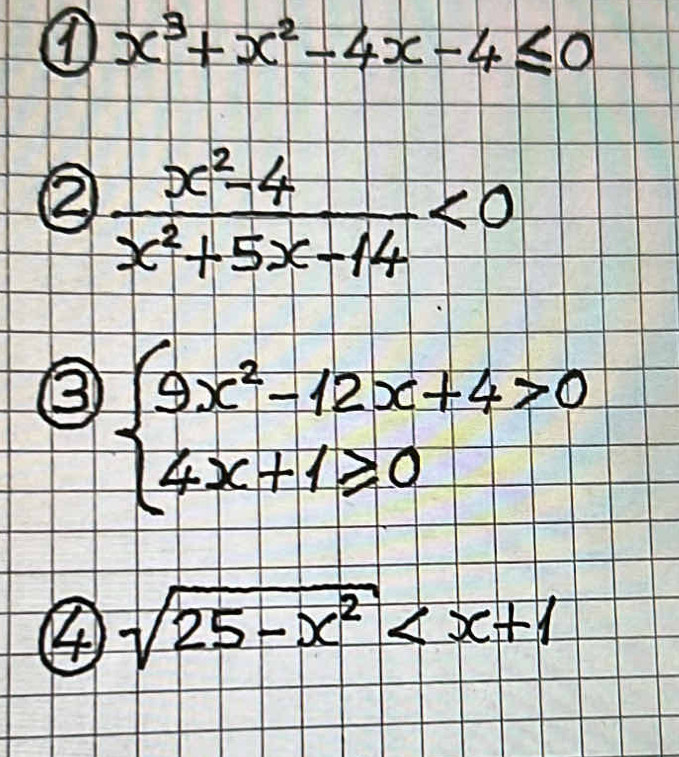 ① x³+x²-4x-4≤0
② x²-4
x²+5x-14 <0
③ {9x²-12x+4>0
4x+1≥0
④ √25-x² < x+1